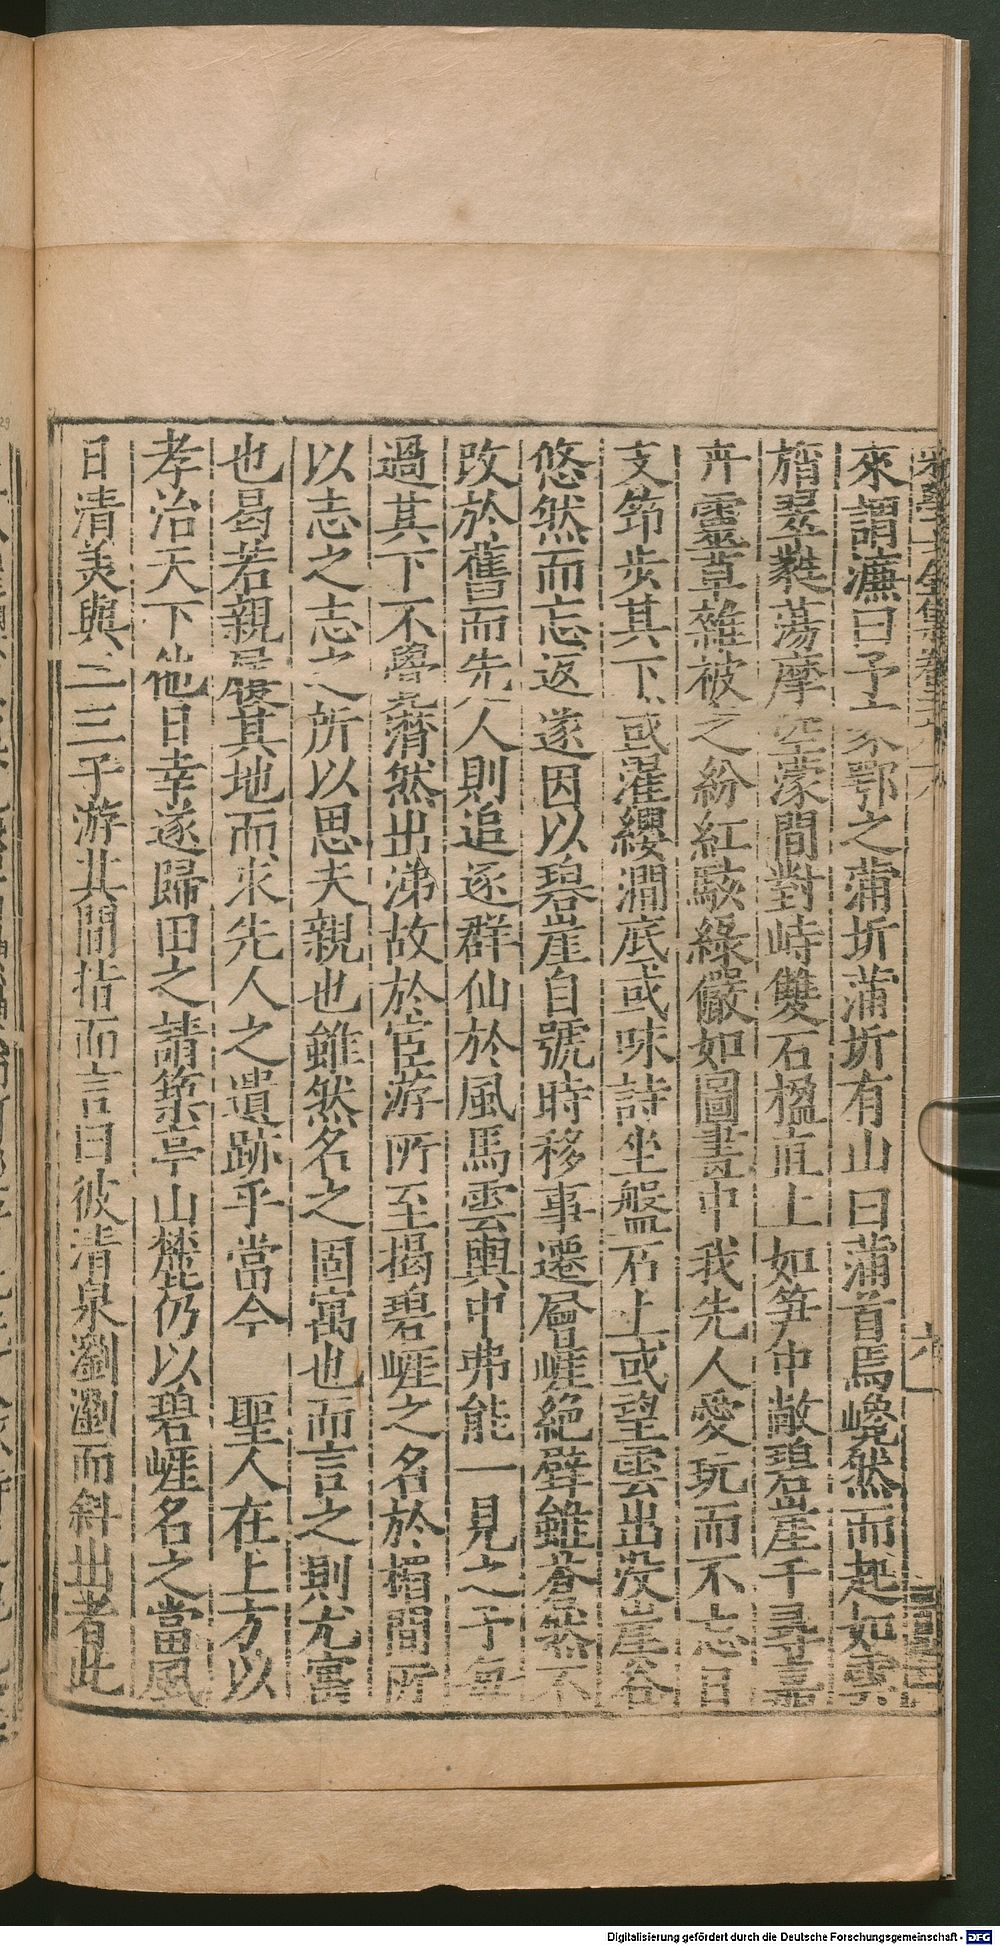 來謂濂曰予家鄂之蒲圻蒲圻有山曰蒲首焉巉然而起如雲
旓翠蕤蕩摩空蒙間對峙雙石楹直上如笋中敞碧崖千尋嘉
卉靈草雜被之紛紅駭綠儼如圖畫中我先人愛玩而不忘日
支筇步其下或濯纓澗底或咏詩坐盤石上或望雲出没崖谷
悠然而忘返遂因以碧崖自號時移事遷層崕絶壁雖蒼然不
改於舊而先人則追逐群仙於風馬雲輿中弗能一見之予每
過其下不覺 濟然出涕故於宦游所至揭碧崕之名於楣間所
以志之志之所以思夫親也雖然名之固寓也而言之則尤寓
也曷若親 其地而求先人之遺跡乎當今 聖人在上方以
孝治天下他日幸遂歸田之請築亭山麓仍以碧崕名之當風
日清美與二三子游其間指而言曰彼清泉瀏瀏而斜出者此
Digitalisierung gefördert durch die Deutsche Forschungsgemeinschaft - DFG